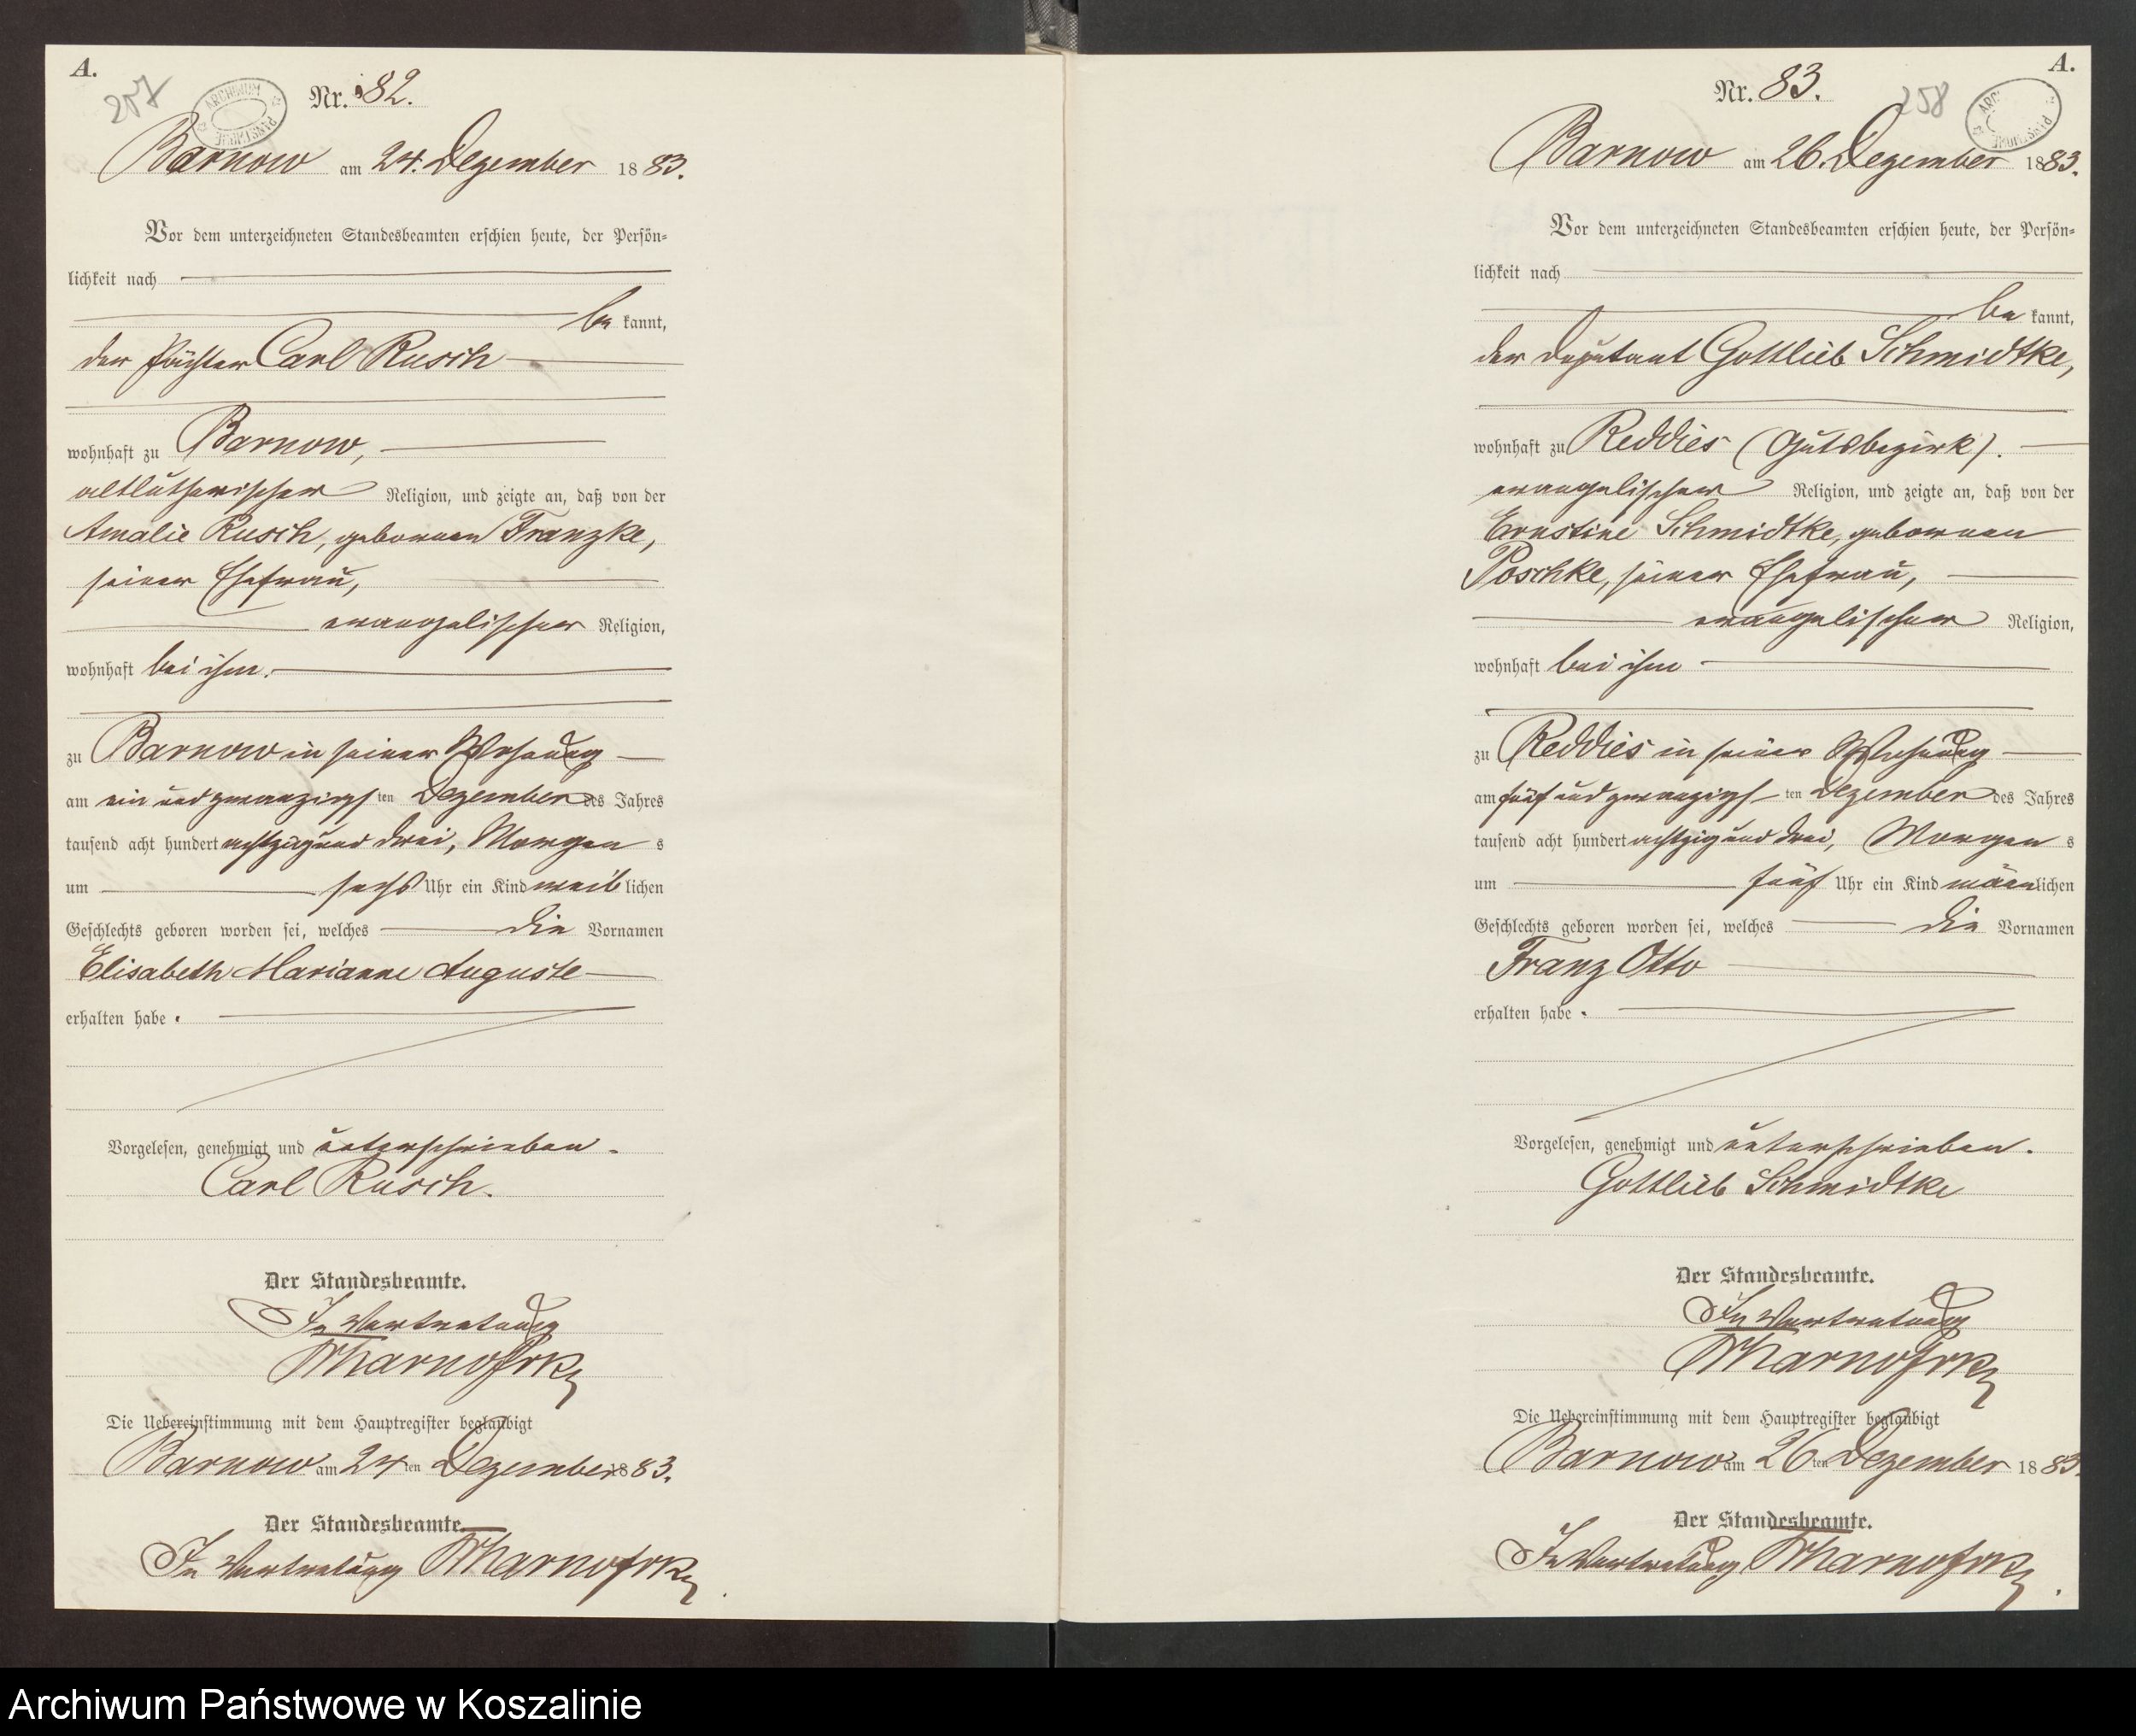 A.
257
ARCHIWUM PAŃSTWOWE
Nr. 82.
Barnow am 24. Dezember 1883.
Vor dem unterzeichneten Standesbeamten erschien heute, der Persön=
lichkeit nach
be kannt,
der Pächter Carl Rusch
wohnhaft zu Barnow,
altlutherischer Religion, und zeigte an, daß von der
Amalie Rusch, gebornen Franzke,
seiner Ehefrau,
evangelischer Religion,
wohnhaft bei ihm.
zu Barnow in seiner Wohnung
am ein und zwanzigsten Dezember des Jahres
tausend acht hundert achtzig und drei, Morgens
um sechs Uhr ein Kind weiblichen
Geschlechts geboren worden sei, welches die Vornamen
Elisabeth Marianne Auguste
erhalten habe.
Vorgelesen, genehmigt und unterschrieben.
Carl Rusch.
Der Standesbeamte.
In Vertretung
Die Uebereinstimmung mit dem Hauptregister beglaubigt
Barnow am 24ten Dezember 1883.
Der Standesbeamte.
In Vertretung
A.
258
Nr. 83.
Barnow am 26. Dezember 1883.
Vor dem unterzeichneten Standesbeamten erschien heute, der Persön=
lichkeit nach
be kannt,
der Deputant Gottlieb Schmidtke,
wohnhaft zu Reddies (Gutsbezirk).
evangelischer Religion, und zeigte an, daß von der
Ernstine Schmidtke, gebornen
Poschke, seiner Ehefrau,
evangelischer Religion,
wohnhaft bei ihm
zu Reddies in seiner Wohnung
am fünf und zwanzigsten Dezember des Jahres
tausend acht hundert achtzig und drei, Morgens
um fünf Uhr ein Kind männlichen
Geschlechts geboren worden sei, welches die Vornamen
Franz Otto
erhalten habe.
Vorgelesen, genehmigt und unterschrieben.
Gottlieb Schmidtke
Der Standesbeamte.
In Vertretung
Die Uebereinstimmung mit dem Hauptregister beglaubigt
Barnow am 26ten Dezember 1883.
Der Standesbeamte.
In Vertretung
Archiwum Państwowe w Koszalinie